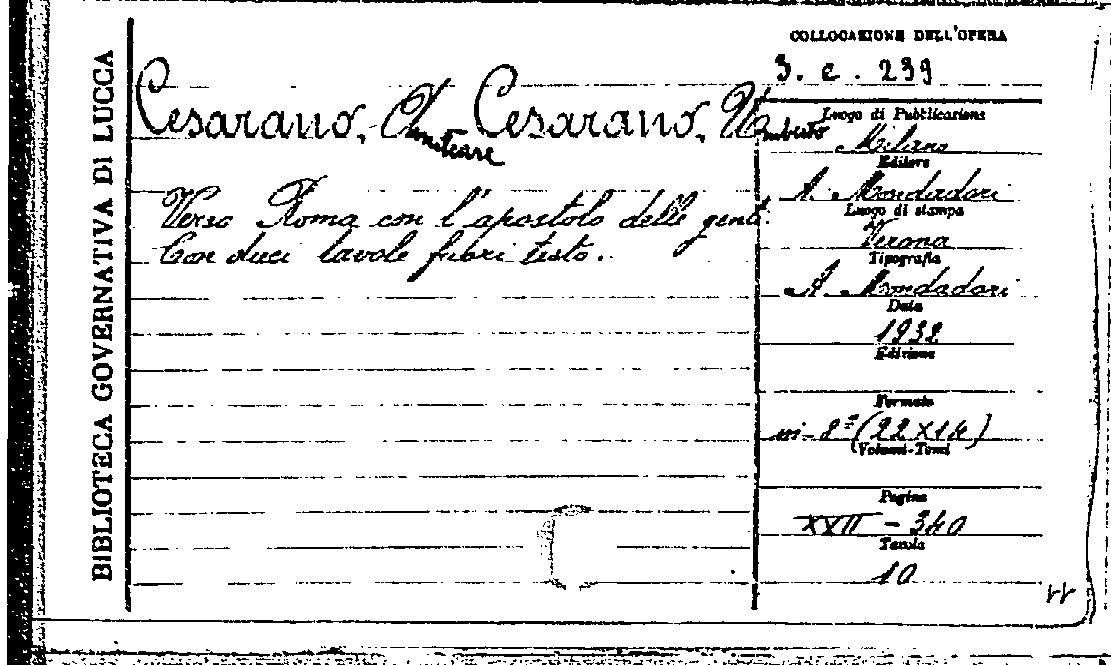 BIBLIOTECA GOVERNATIVA DI LUCCA
Cesarano, Cesarano, Umberto
Verso Roma con l'apostolo delle genti.
Con dieci tavole fuori testo.
COLLOCAZIONE DELL'OPERA
3. c. 239
Luogo di Pubblicazione
Milano
Editore
A. Mondadori
Luogo di stampa
Verona
Tipografia
A. Mondadori
Data
1932
Edizione
Formato
in-8º (22x14)
Volumi-Tomi
Pagine
XXII - 340
Tavole
10